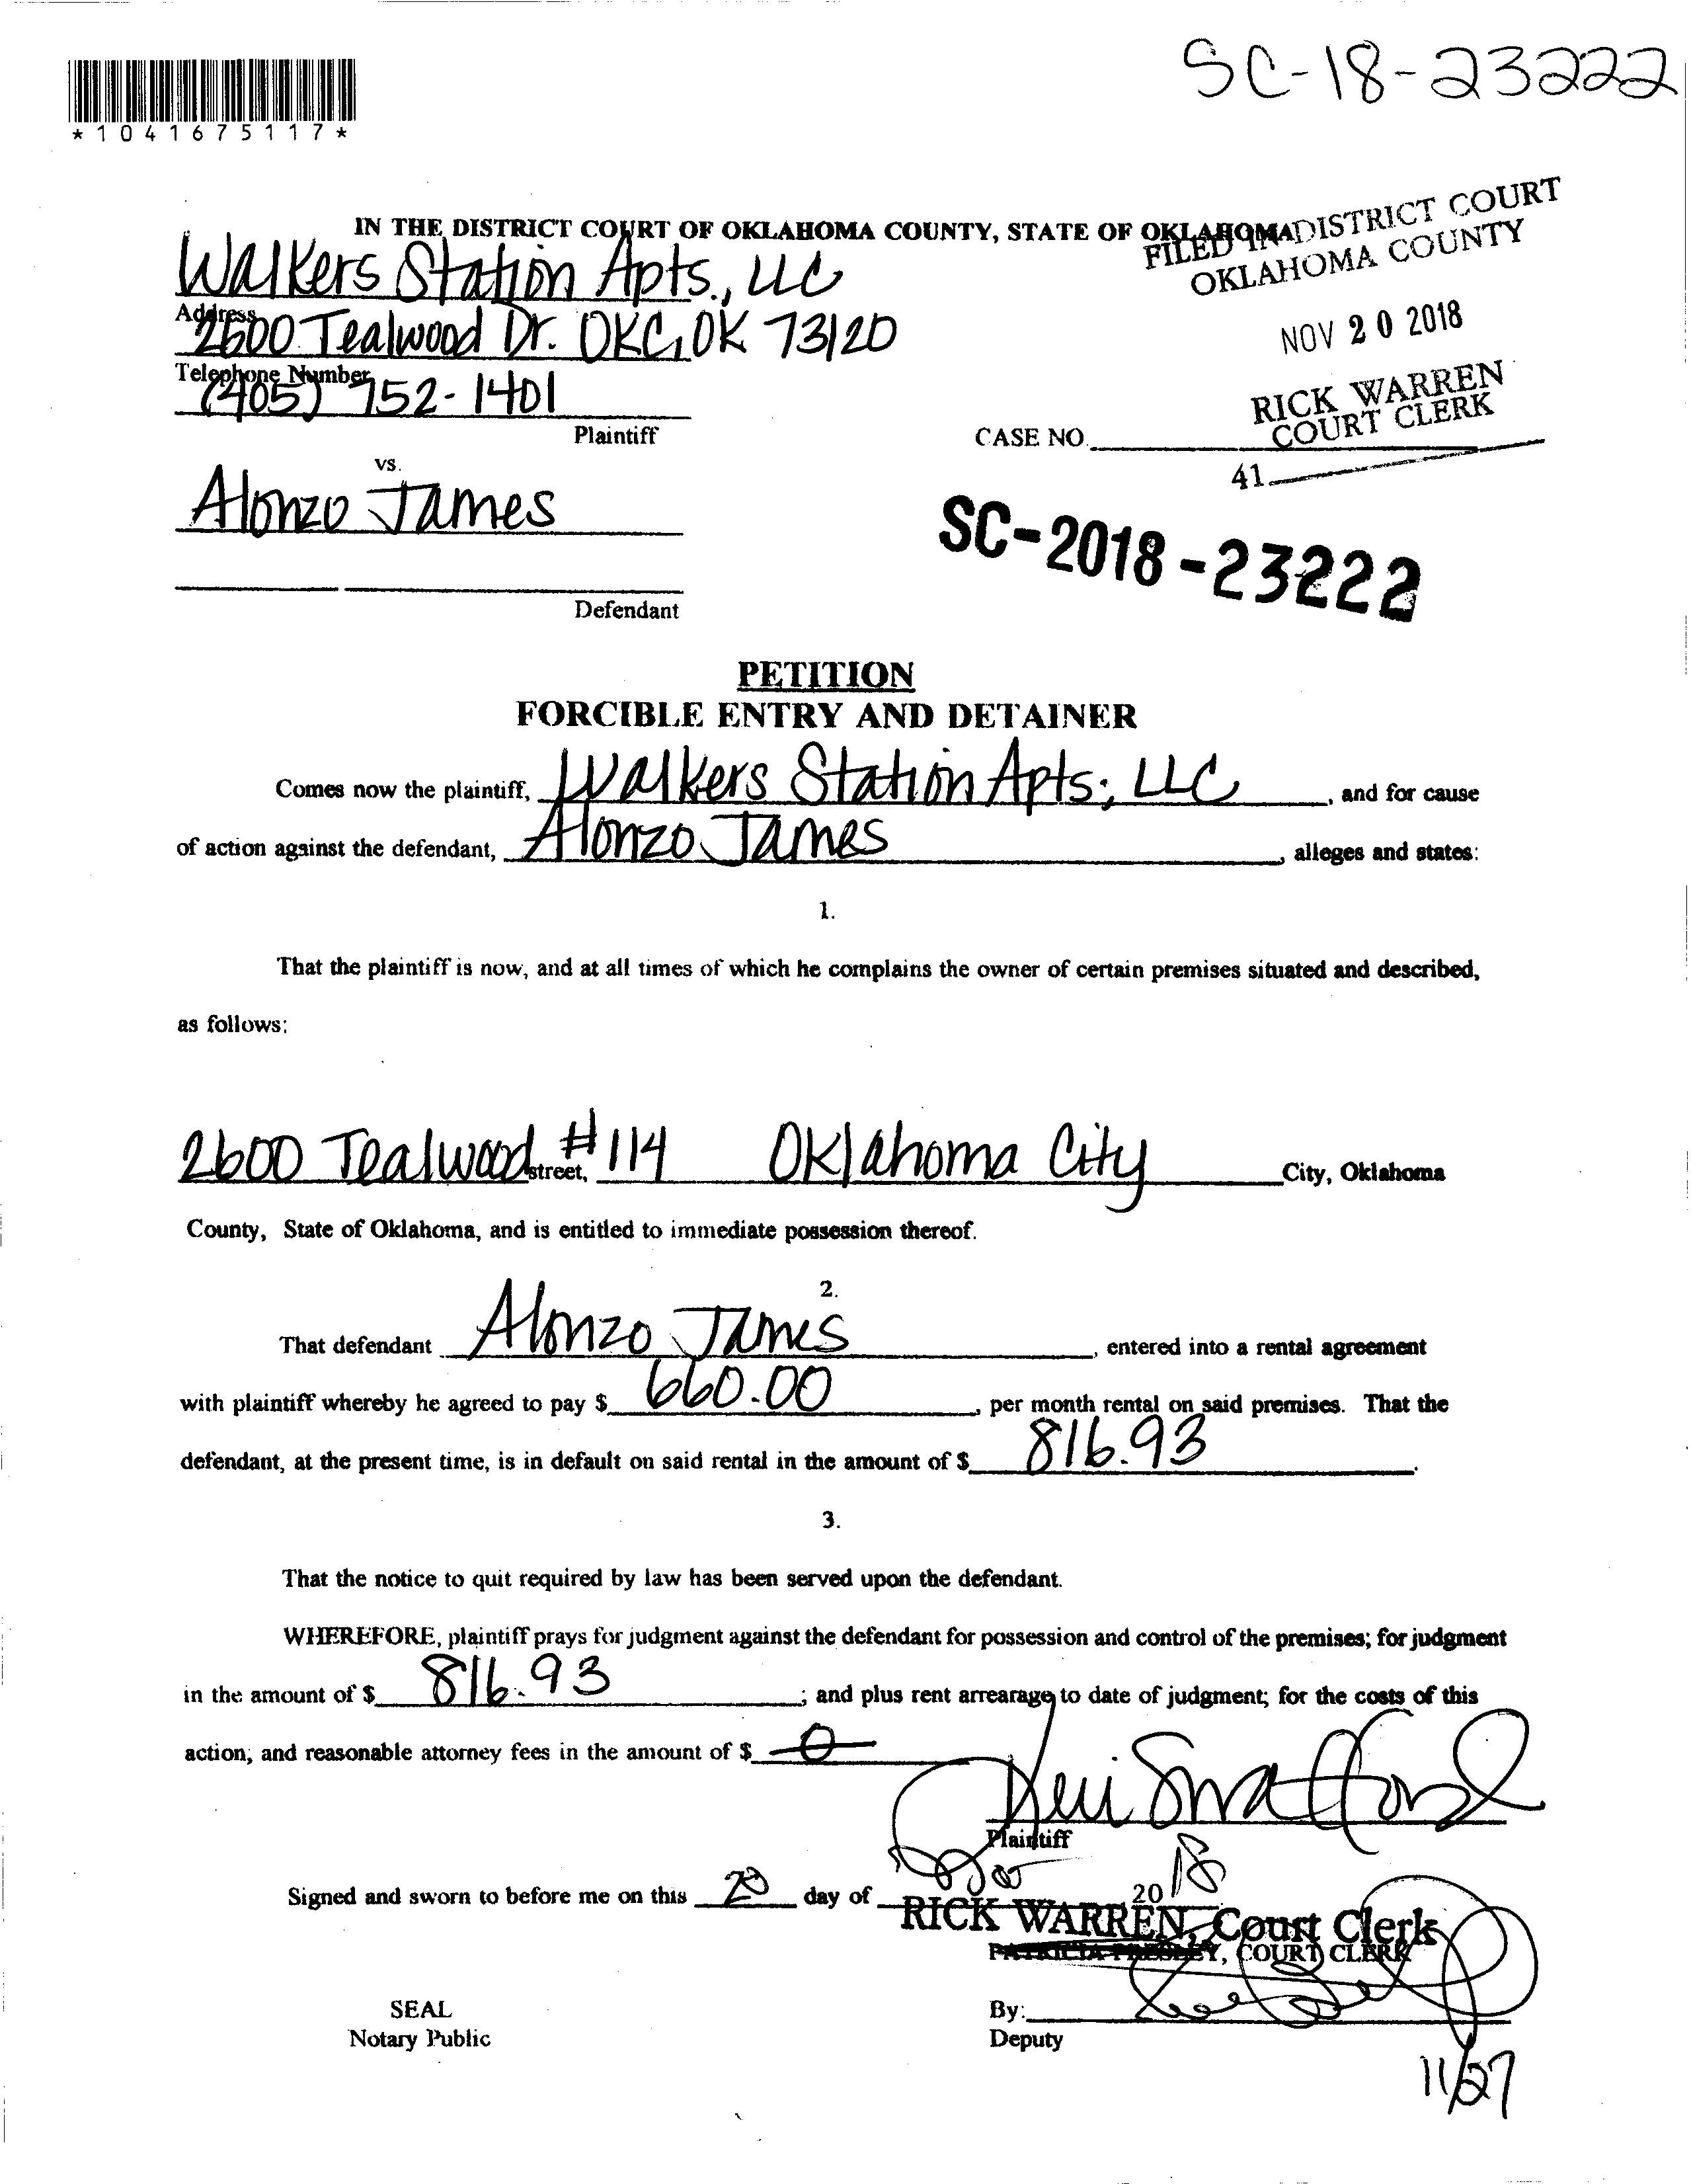 SC-18-23222
*1041675117*
IN THE DISTRICT COURT OF OKLAHOMA COUNTY, STATE OF OKLAHOMA
FILED IN DISTRICT COURT
OKLAHOMA COUNTY
NOV 20 2018
RICK WARREN
COURT CLERK
41
Walkers Station Apts., LLC
Address
2600 Tealwood Dr. OKC, OK 73120
Telephone Number
(405) 752-1401
Plaintiff
CASE NO.
vs.
Alonzo James
SC-2018-23222
Defendant
PETITION
FORCIBLE ENTRY AND DETAINER
Comes now the plaintiff, Walkers Station Apts., LLC, and for cause
of action against the defendant, Alonzo James, alleges and states:
1.
That the plaintiff is now, and at all times of which he complains the owner of certain premises situated and described,
as follows:
2600 Tealwood street, #114 Oklahoma City City, Oklahoma
County, State of Oklahoma, and is entitled to immediate possession thereof.
2.
That defendant Alonzo James, entered into a rental agreement
with plaintiff whereby he agreed to pay $ 660.00, per month rental on said premises. That the
defendant, at the present time, is in default on said rental in the amount of $ 816.93.
3.
That the notice to quit required by law has been served upon the defendant.
WHEREFORE, plaintiff prays for judgment against the defendant for possession and control of the premises; for judgment
in the amount of $ 816.93; and plus rent arrearage to date of judgment; for the costs of this
action; and reasonable attorney fees in the amount of $ 0
Plaintiff
Signed and sworn to before me on this 20 day of 2018
RICK WARREN, Court Clerk
PATRICIA PRESLEY, COURT CLERK
SEAL
Notary Public
By:
Deputy
11/27